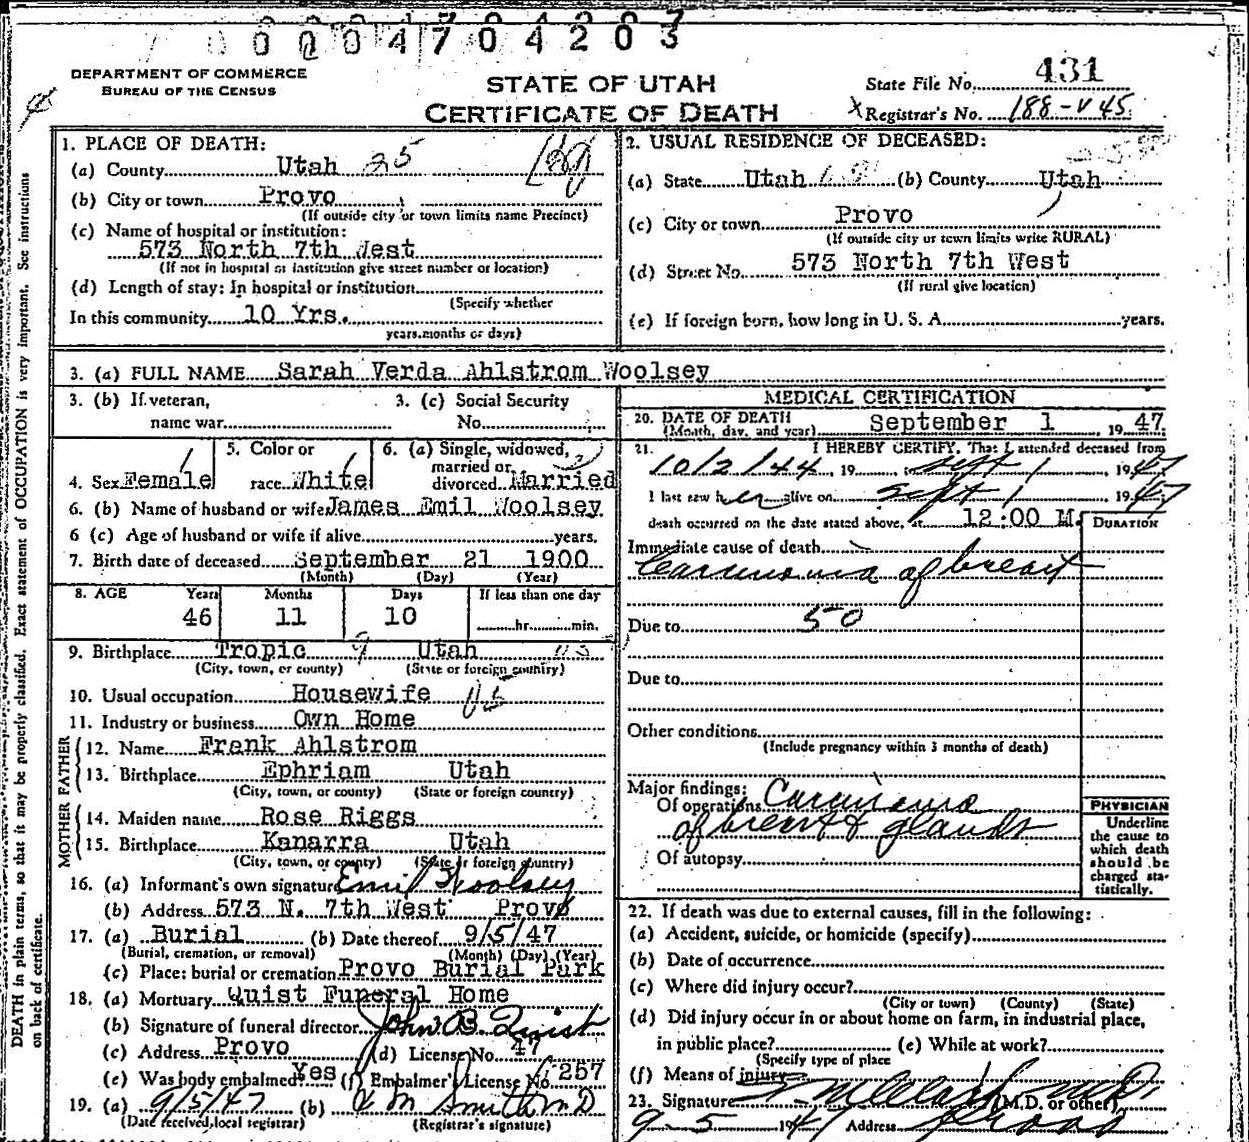 0004704203
DEPARTMENT OF COMMERCE
BUREAU OF THE CENSUS
STATE OF UTAH
CERTIFICATE OF DEATH
State File No. 431
X Registrar's No. 188-V45
1. PLACE OF DEATH:
(a) County Utah 25
(b) City or town Provo
(If outside city or town limits name Precinct)
(c) Name of hospital or institution:
573 North 7th West
(If not in hospital or institution give street number or location)
(d) Length of stay: In hospital or institution
(Specify whether
In this community 10 Yrs.
years, months or days)
2. USUAL RESIDENCE OF DECEASED:
(a) State Utah (b) County Utah
(c) City or town Provo
(If outside city or town limits write RURAL)
(d) Street No. 573 North 7th West
(If rural give location)
(e) If foreign born, how long in U. S. A. years.
3. (a) FULL NAME Sarah Verda Ahlstrom Woolsey
3. (b) If veteran,
name war
3. (c) Social Security
No.
4. Sex Female
5. Color or
race White
6. (a) Single, widowed,
married or
divorced Married
6. (b) Name of husband or wife James Emil Woolsey
6 (c) Age of husband or wife if alive years.
7. Birth date of deceased September 21 1900
(Month) (Day) (Year)
8. AGE Years Months Days If less than one day
46 11 10 hr. min.
9. Birthplace Tropic 9 Utah
(City, town, or county) (State or foreign country)
10. Usual occupation Housewife
11. Industry or business Own Home
FATHER
12. Name Frank Ahlstrom
13. Birthplace Ephriam Utah
(City, town, or county) (State or foreign country)
MOTHER
14. Maiden name Rose Riggs
15. Birthplace Kanarra Utah
(City, town, or county) (State or foreign country)
16. (a) Informant's own signature Emil Woolsey
(b) Address 573 N. 7th West Provo
17. (a) Burial (b) Date thereof 9/5/47
(Burial, cremation, or removal) (Month) (Day) (Year)
(c) Place: burial or cremation Provo Burial Park
18. (a) Mortuary Quist Funeral Home
(b) Signature of funeral director John B. Quist
(c) Address Provo (d) License No. 47
(e) Was body embalmed? Yes (f) Embalmer's License No. 257
19. (a) 9/5/47 (b) Smith MD
(Date received, local registrar) (Registrar's signature)
MEDICAL CERTIFICATION
20. DATE OF DEATH
(Month, day, and year) September 1, 1947
21. I HEREBY CERTIFY, That I attended deceased from
10/2/44, 19 , Sept 1, 1947
I last saw her alive on Sept 1, 1947
death occurred on the date stated above, at 12:00 M.
DURATION
Immediate cause of death
Carcinoma of breast
Due to 50
Due to
Other conditions
(Include pregnancy within 3 months of death)
Major findings:
Of operations Carcinoma
of breast & glands
Of autopsy
PHYSICIAN
Underline
the cause to
which death
should be
charged sta-
tistically.
22. If death was due to external causes, fill in the following:
(a) Accident, suicide, or homicide (specify)
(b) Date of occurrence
(c) Where did injury occur?
(City or town) (County) (State)
(d) Did injury occur in or about home on farm, in industrial place,
in public place? (e) While at work?
(Specify type of place
(f) Means of injury
23. Signature (M.D. or other)
9-5 1947 Address Provo
DEATH in plain terms, so that it may be properly classified. Exact statement of OCCUPATION is very important. See instructions
on back of certificate.